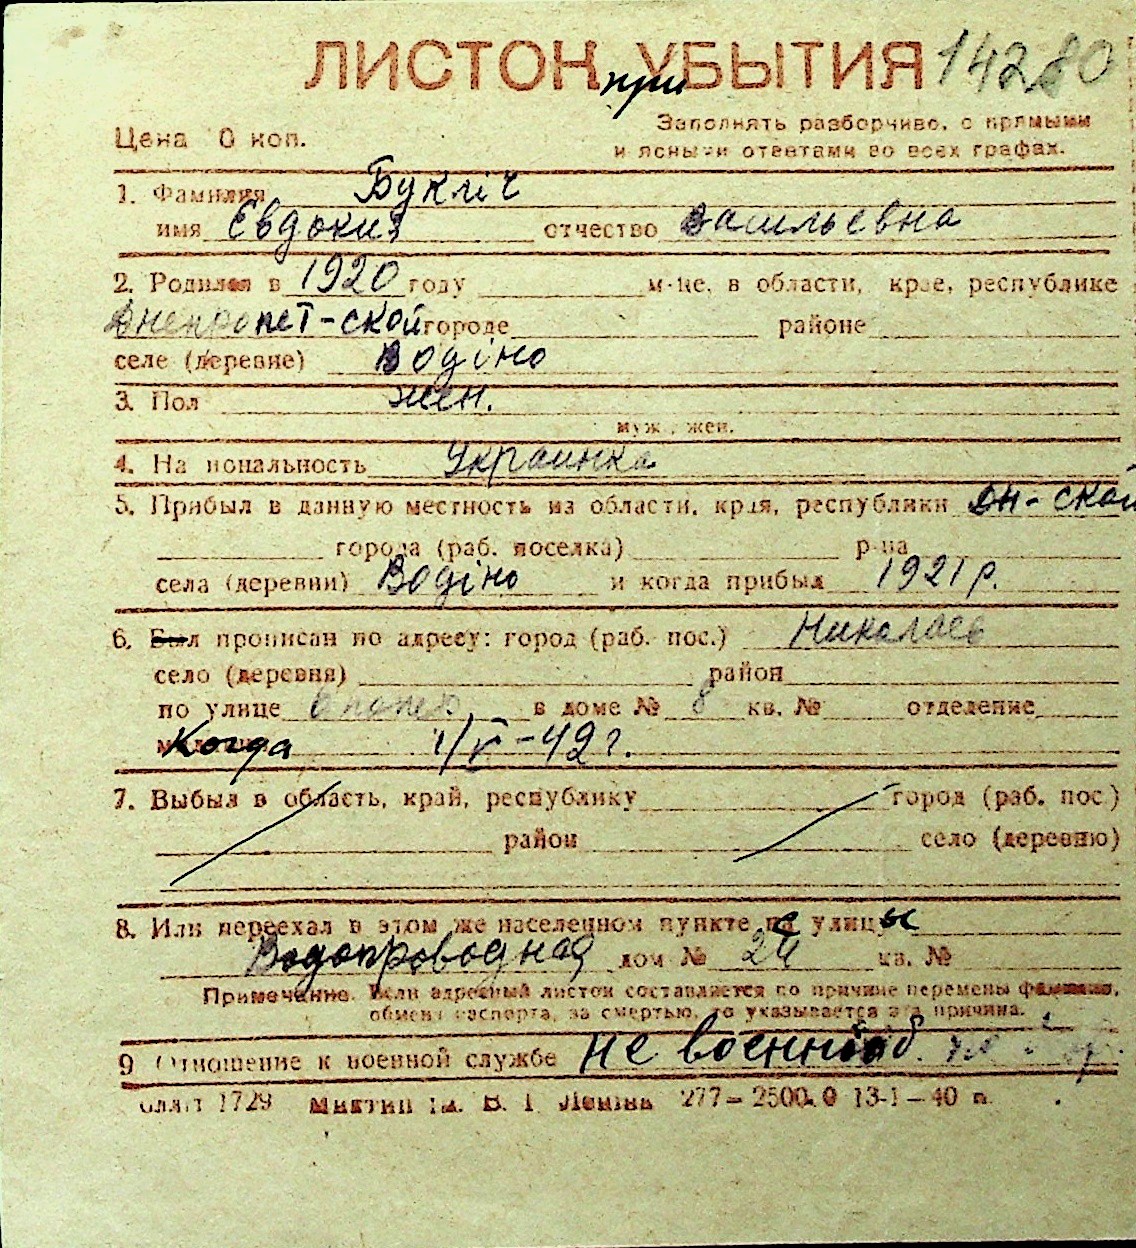 ЛИСТОК при УБЫТИЯ 14280
Цена 0 коп.
Заполнять разборчиво, с прямыми
и ясными ответами во всех графах.
1. Фамилия Букліч
имя Євдокия отчество Васильевна
2. Родился в 1920 году м-це, в области, крае, республике
Днепропет-ской городе районе
селе (деревне) Водіно
3. Пол жен.
муж., жен.
4. Национальность Украинка
5. Прибыл в данную местность из области, края, республики Дн-ской
города (раб. поселка) р-на
села (деревни) Водіно и когда прибыл 1921 р.
6. Был прописан по адресу: город (раб. пос.) Николаев
село (деревня) район
по улице в доме № 8 кв. № отделение
Когда 1/V-42 г.
7. Выбыл в область, край, республику город (раб. пос.)
район село (деревню)
8. Или переехал в этом же населенном пункте с улицы
Водопроводная дом № 24 кв. №
Примечание. Если адресный листок составляется по причине перемены фамилии,
обмена паспорта, за смертью, то указывается эта причина.
9 Отношение к военной службе не военнооб.
1729 им. В. І. Леніна 277–2500.0 13-1–40 п.